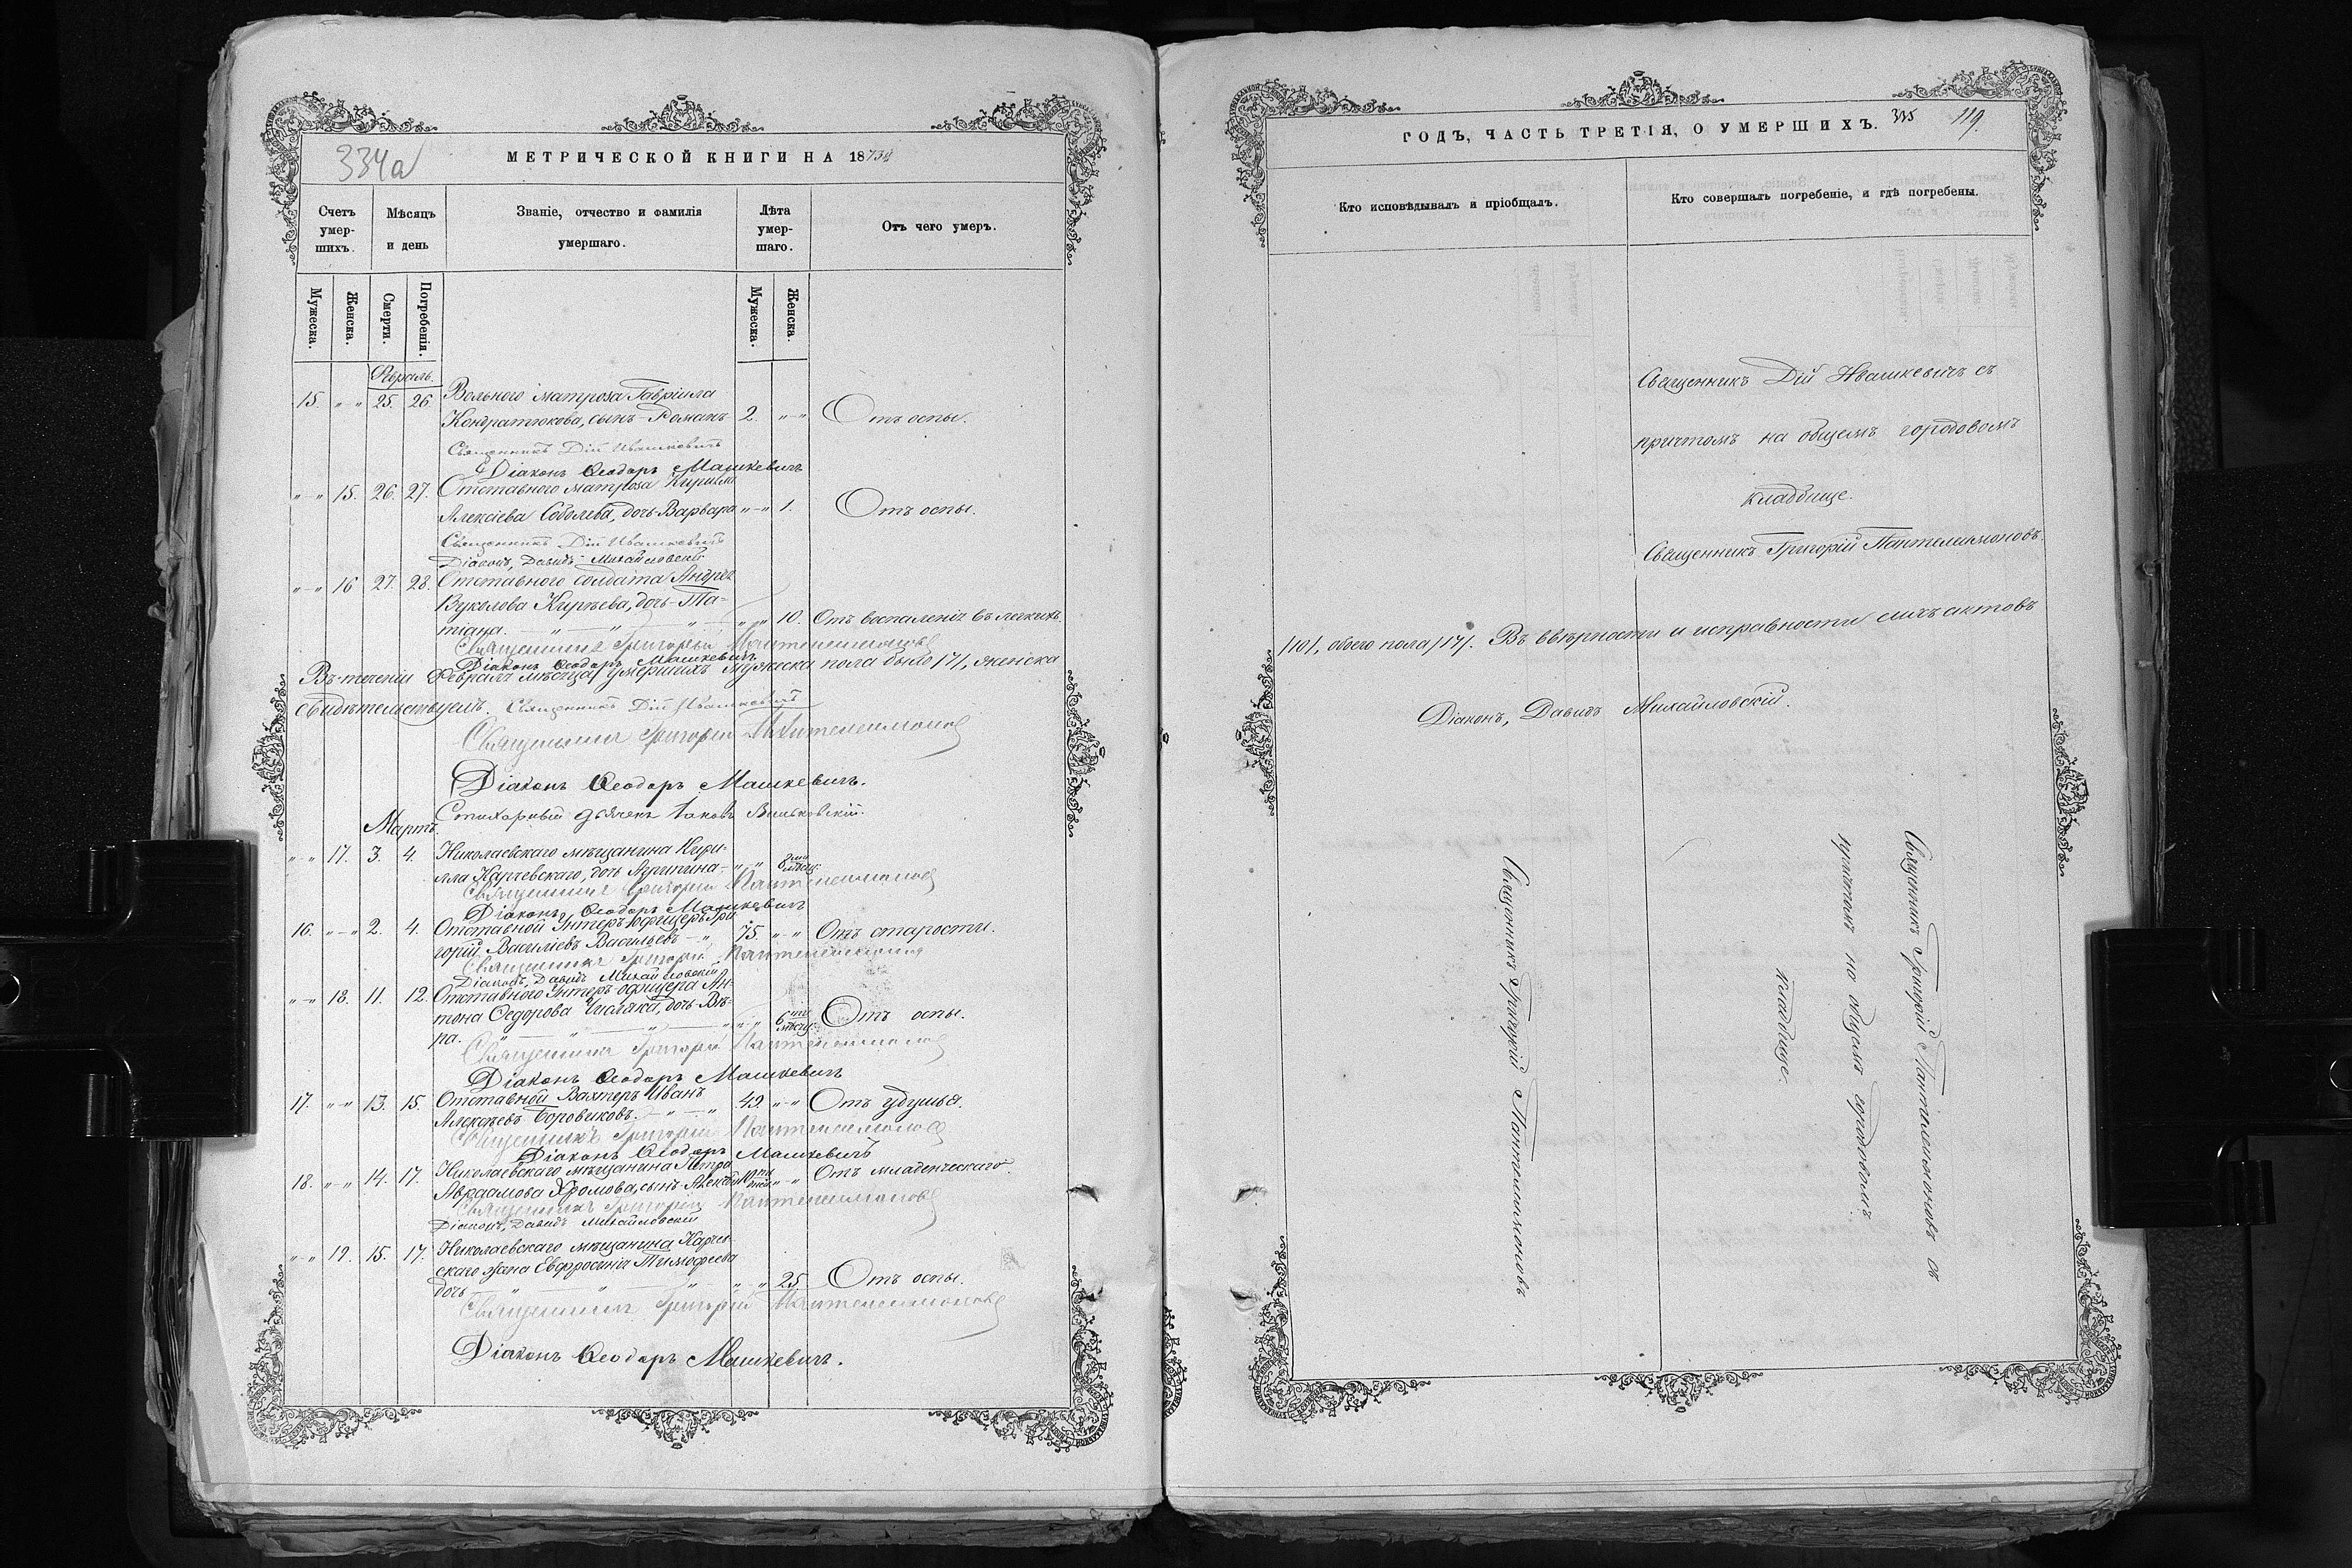 334а
МЕТРИЧЕСКОЙ КНИГИ НА 1873й
Счетъ умер-шихъ.
Мѣсяцъ и день
Званіе, отчество и фамилія умершаго.
Лѣта умер-шаго.
Отъ чего умеръ.
Мужеска.
Женска.
Смерти.
Погребенія.
Мужеска.
Женска.
Февраль.
15. " " 25. 26. Вольного матроса Гавріила
Кондратюкова, сынъ Романъ 2. " " Отъ оспы.
Священникъ Дій Ивашкевичъ
Діаконъ Ѳеодоръ Машкевичъ
" " 15. 26. 27. Отставного матроса Кирилла
Алексіева Соболева, дочь Варвара " " 1. Отъ оспы.
Священникъ Дій Ивашкевичъ
Діаконъ, Давидъ Михайловскій
" " 16 27. 28. Отставного солдата Андрея
Вуколова Кирѣева, дочь Та-
тіана. " " " " " 10. Отъ воспаленія въ легкихъ.
Священникъ Григорій Пантелеимоновъ
Діаконъ Ѳеодоръ Машкевичъ
Въ теченіи Февраля мѣсяца умершихъ мужеска пола было /7/, женска
свидѣтельствуемъ. Священникъ Дій Ивашкевичъ
Священникъ Григорій Пантелеимоновъ
Діаконъ Ѳеодоръ Машкевичъ.
Стихарный дьячекъ Іаковъ
Мартъ.
" " 17. 3. 4. Николаевскаго мѣщанина Кири-
лла Карчевскаго, дочь Агрипина " "
Священникъ Григорій Пантелеимоновъ
Діаконъ Ѳеодоръ Машкевичъ
16. " " 2. 4. Отставной Унтеръ офицеръ Гри
горій Василіевъ Васильевъ " 75. " " Отъ старости.
Священникъ Григорій Пантелеимоновъ
Діаконъ, Давидъ Михайловскій
" " 18. 11. 12. Отставного Унтеръ офицера Ан-
тона Ѳедорова Чиляка, дочь Вѣ-
ра. " " " " 6 мѣсяц. Отъ оспы.
Священникъ Григорій Пантелеимоновъ
Діаконъ Ѳеодоръ Машкевичъ
17. " " 13. 15. Отставной Вахтеръ Иванъ
Алексѣевъ Боровиковъ. " " 49. " " Отъ удушья.
Священникъ Григорій Пантелеимоновъ
Діаконъ Ѳеодоръ Машкевичъ
18. " " 14. 17. Николаевскаго мѣщанина Петра
Авраамова Хромова, сынъ " " Отъ младенческаго.
Священникъ Григорій Пантелеимоновъ
Діаконъ, Давидъ Михайловскій
" " 19. 15. 17. Николаевскаго мѣщанина Карчев-
скаго жена Евфросинія Тимофеева
дочь " " " " " 25 Отъ оспы.
Священникъ Григорій Пантелеимоновъ
Діаконъ Ѳеодоръ Машкевичъ.
ГОДЪ, ЧАСТЬ ТРЕТІЯ, О УМЕРШИХЪ. 335 119.
Кто исповѣдывалъ и пріобщалъ.
Кто совершалъ погребеніе, и гдѣ погребены.
Священникъ Дій Ивашкевичъ съ
причтомъ на общемъ городовомъ
кладбище.
Священникъ Григорій Пантелеимоновъ.
/10/, обоего пола /17/. Въ ввѣрности и исправности сихъ актовъ
Діаконъ, Давидъ Михайловскій.
Священникъ Григорій Пантелеимоновъ
Священникъ Григорій Пантелеимоновъ съ
причтомъ на общемъ городовомъ
кладбище.